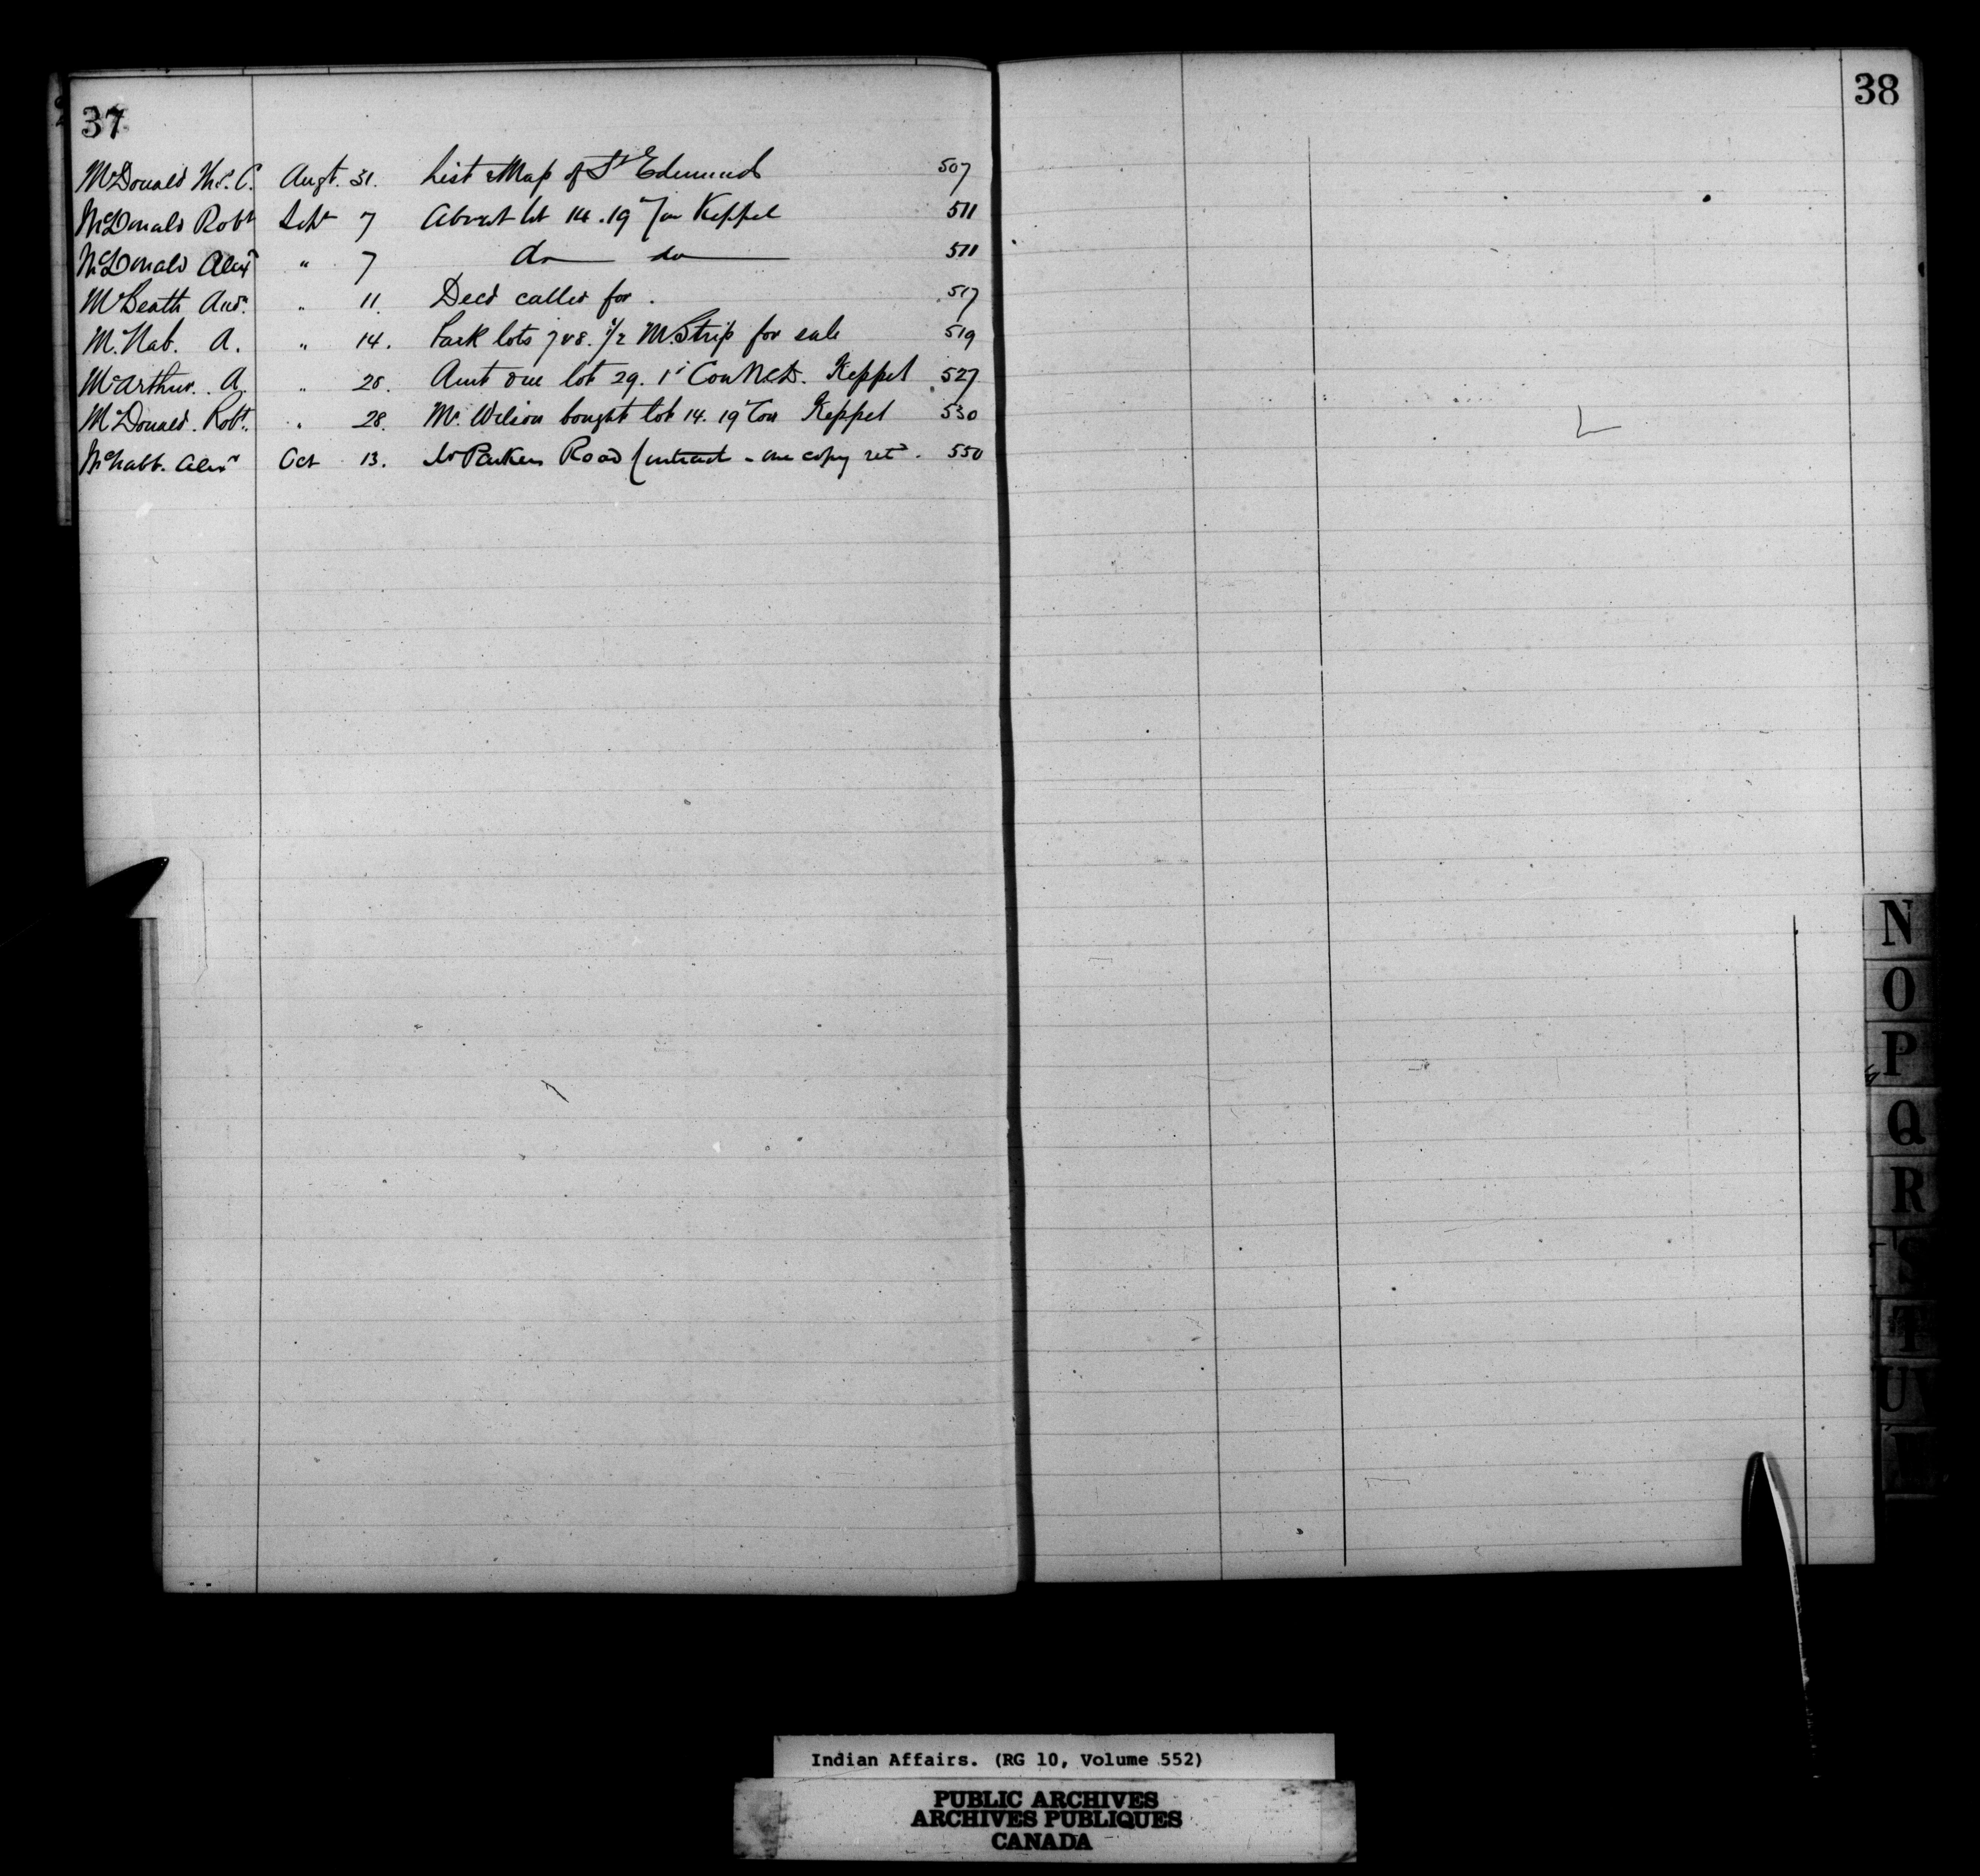 37
McDonald Wm. C. Augt. 31. List & Map of St Edmund 507
McDonald Robt Sept 7 About lot 14. 19 Con Keppel 511
McDonald Alexr " 7 do do 511
McBeath Andw. " 11. Deed called for. 517
McNab. A. " 14. Park lots 7 & 8. 1/2 M. Strip for sale 519
McArthur. A. " 25. Amt due lot 29. 1st Con N.C.D. Keppel 527
McDonald. Robt. " 28. Mr. Wilson bought lot 14. 19 Con Keppel 530
McNabb. Alexr Oct 13. Parkers Road Contract - one copy retd. 550
38
N
O
P
Q
R
S
T
U V
Indian Affairs. (RG 10, Volume 552)
PUBLIC ARCHIVES
ARCHIVES PUBLIQUES
CANADA